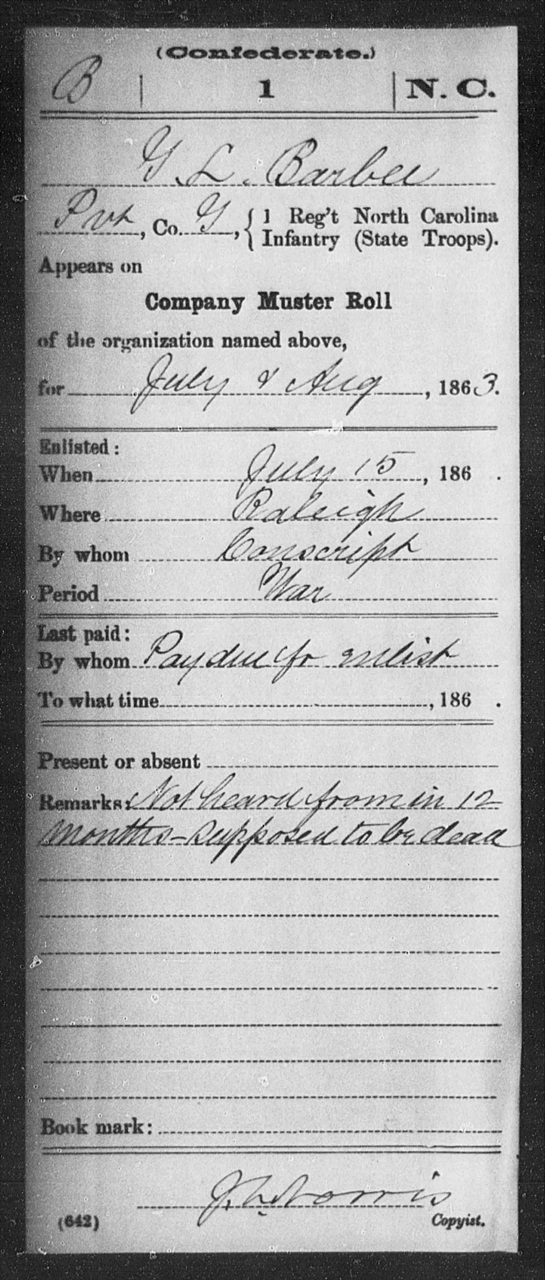 (Confederate.)
B | 1 | N. C.
G. L. Barbee
Pvt, Co. G, { 1 Reg't North Carolina
Infantry (State Troops).
Appears on
Company Muster Roll
of the organization named above,
for July & Aug, 1863.
Enlisted:
When July 15, 186 .
Where Raleigh
By whom Conscript
Period War
Last paid:
By whom Pay due fr enlist
To what time, 186 .
Present or absent
Remarks: Not heard from in 12
months - supposed to be dead
Book mark:
Norris
(642) Copyist.